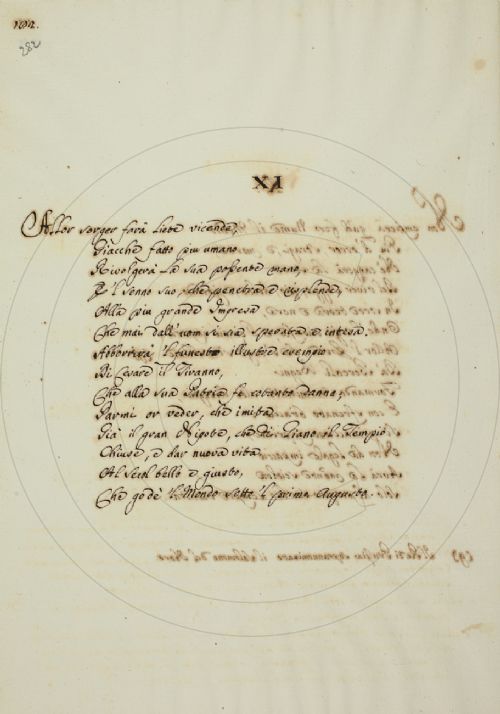 192.
282
XI
Allor sorger farà liete vicende,
Giacchè fatto più umano
Rivolgerà la sua possente mano,
E 'l senno suo, che penetra e risplende,
Alla più grande Impresa
Che mai dall' uom si sia sperata e intesa.
Abborrirà 'l funesto illustre
Di Cesare il Tiranno,
Che alla sua Patria fe cotanto danno;
Parmi or veder, che imita
Già il gran Nipote, che di Giano il Tempio
Chiuse, e dar nuova vita
Al Secol bello e giusto,
Che godè 'l Mondo sotto 'l primo Augusto.